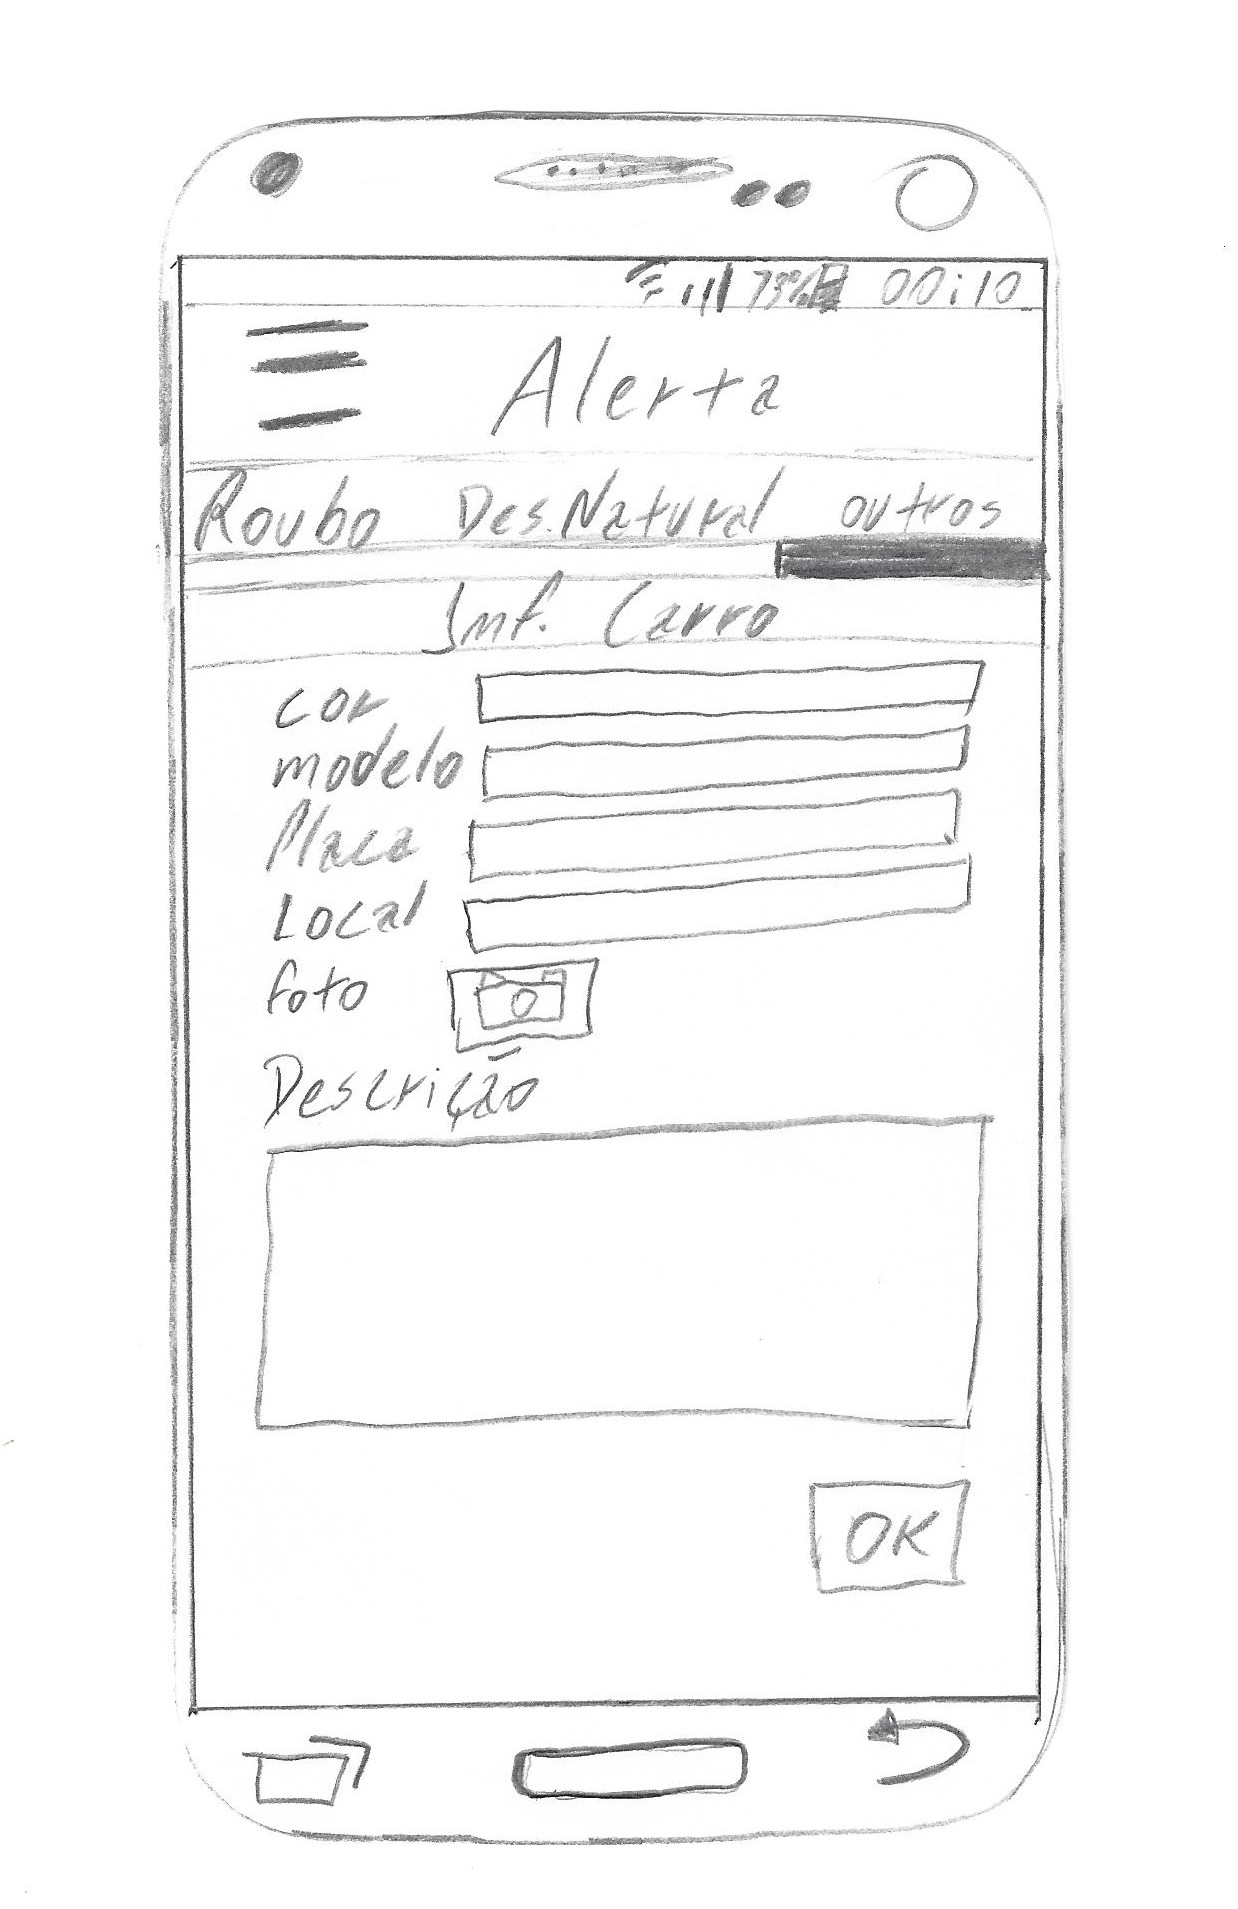 73% 00:10
Alerta
Roubo Des.Natural outros
Inf. Carro
cor
modelo
Placa
Local
foto
Descrição
OK